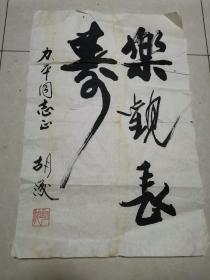 樂觀長
壽
力平同志正
胡